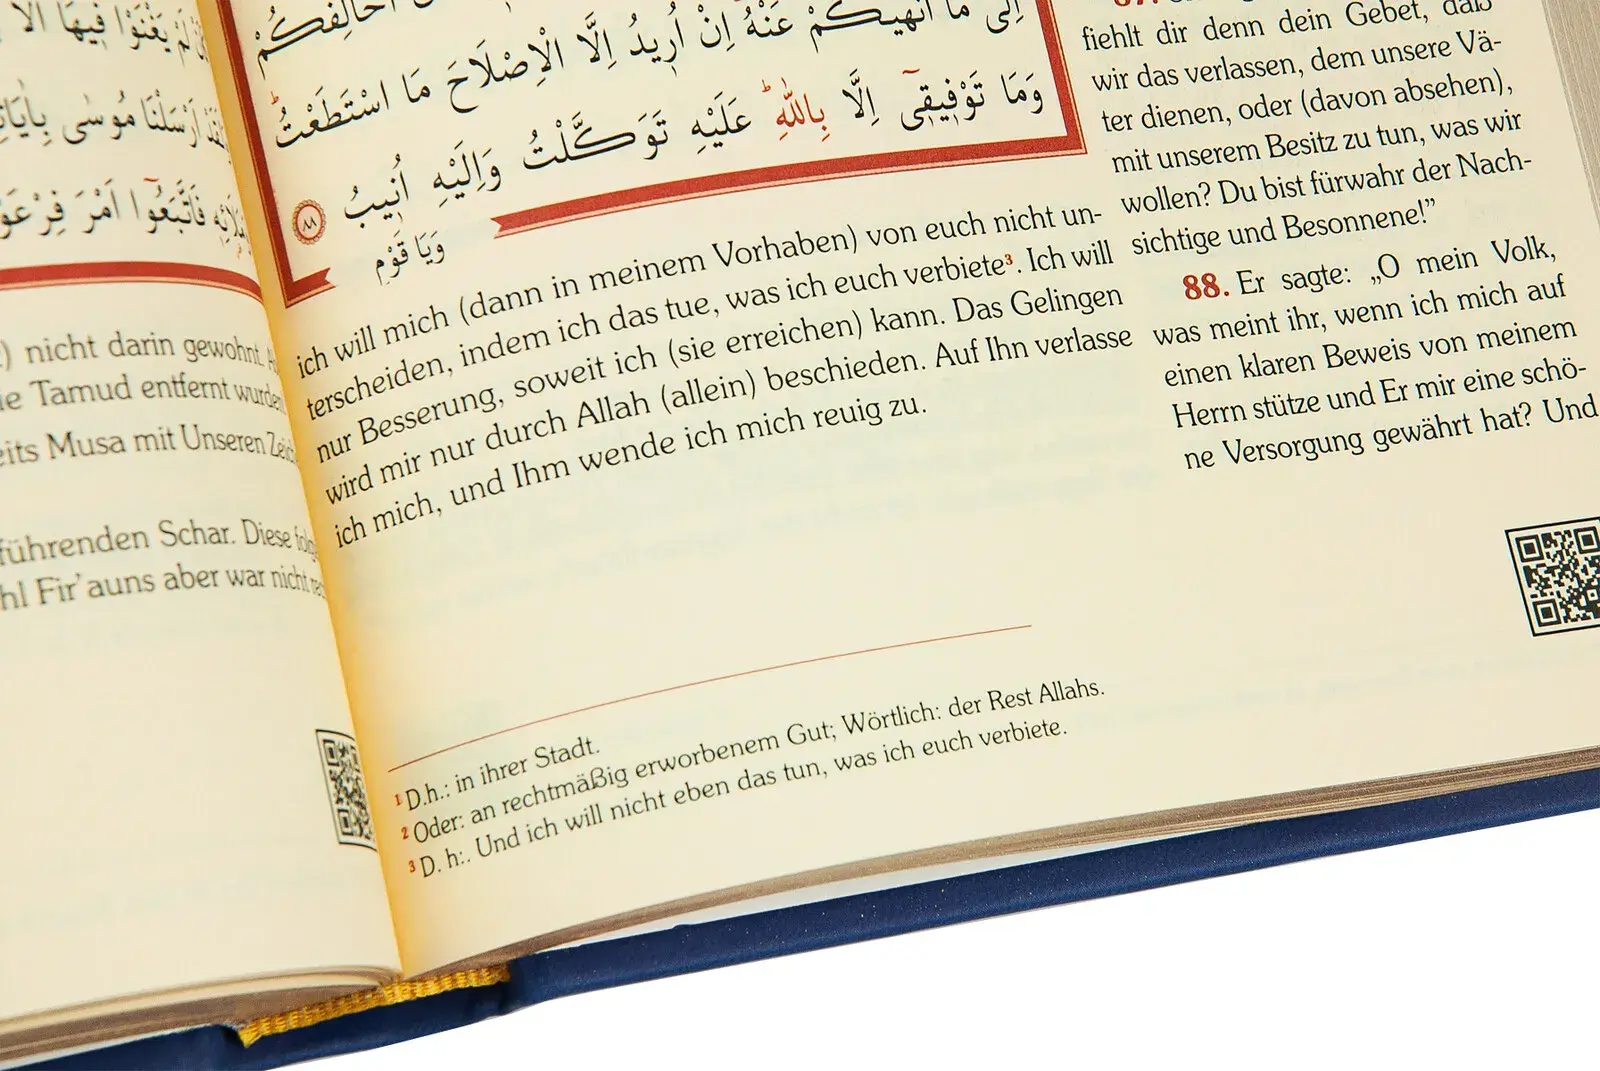 لَمْ يَغْنَوْا فٖيهَا اَلَا
اَرْسَلْنَا مُوسٰى بِاٰيَاتِنَا
فَاتَّبَعُٓوا اَمْرَ فِرْعَوْ
nicht darin gewohnt.
ie Tamud entfernt wurden
eits Musa mit Unseren Zeich
führenden Schar. Diese folg
hl Fir’auns aber war nicht rec
اُخَالِفَكُمْ
اِلٰى مَٓا اَنْهٰيكُمْ عَنْهُ اِنْ اُرٖيدُ اِلَّا الْاِصْلَاحَ مَا اسْتَطَعْتُ
وَمَا تَوْفٖيقٖٓى اِلَّا بِاللّٰهِ عَلَيْهِ تَوَكَّلْتُ وَاِلَيْهِ اُنٖيبُ ٨٨
وَيَا قَوْمِ
ich will mich (dann in meinem Vorhaben) von euch nicht un-
terscheiden, indem ich das tue, was ich euch verbiete³. Ich will
nur Besserung, soweit ich (sie erreichen) kann. Das Gelingen
wird mir nur durch Allah (allein) beschieden. Auf Ihn verlasse
ich mich, und Ihm wende ich mich reuig zu.
¹ D.h.: in ihrer Stadt.
² Oder: an rechtmäßig erworbenem Gut; Wörtlich: der Rest Allahs.
³ D. h:. Und ich will nicht eben das tun, was ich euch verbiete.
87.
fiehlt dir denn dein Gebet, daß
wir das verlassen, dem unsere Vä-
ter dienen, oder (davon absehen),
mit unserem Besitz zu tun, was wir
wollen? Du bist fürwahr der Nach-
sichtige und Besonnene!”
88. Er sagte: „O mein Volk,
was meint ihr, wenn ich mich auf
einen klaren Beweis von meinem
Herrn stütze und Er mir eine schö-
ne Versorgung gewährt hat? Und